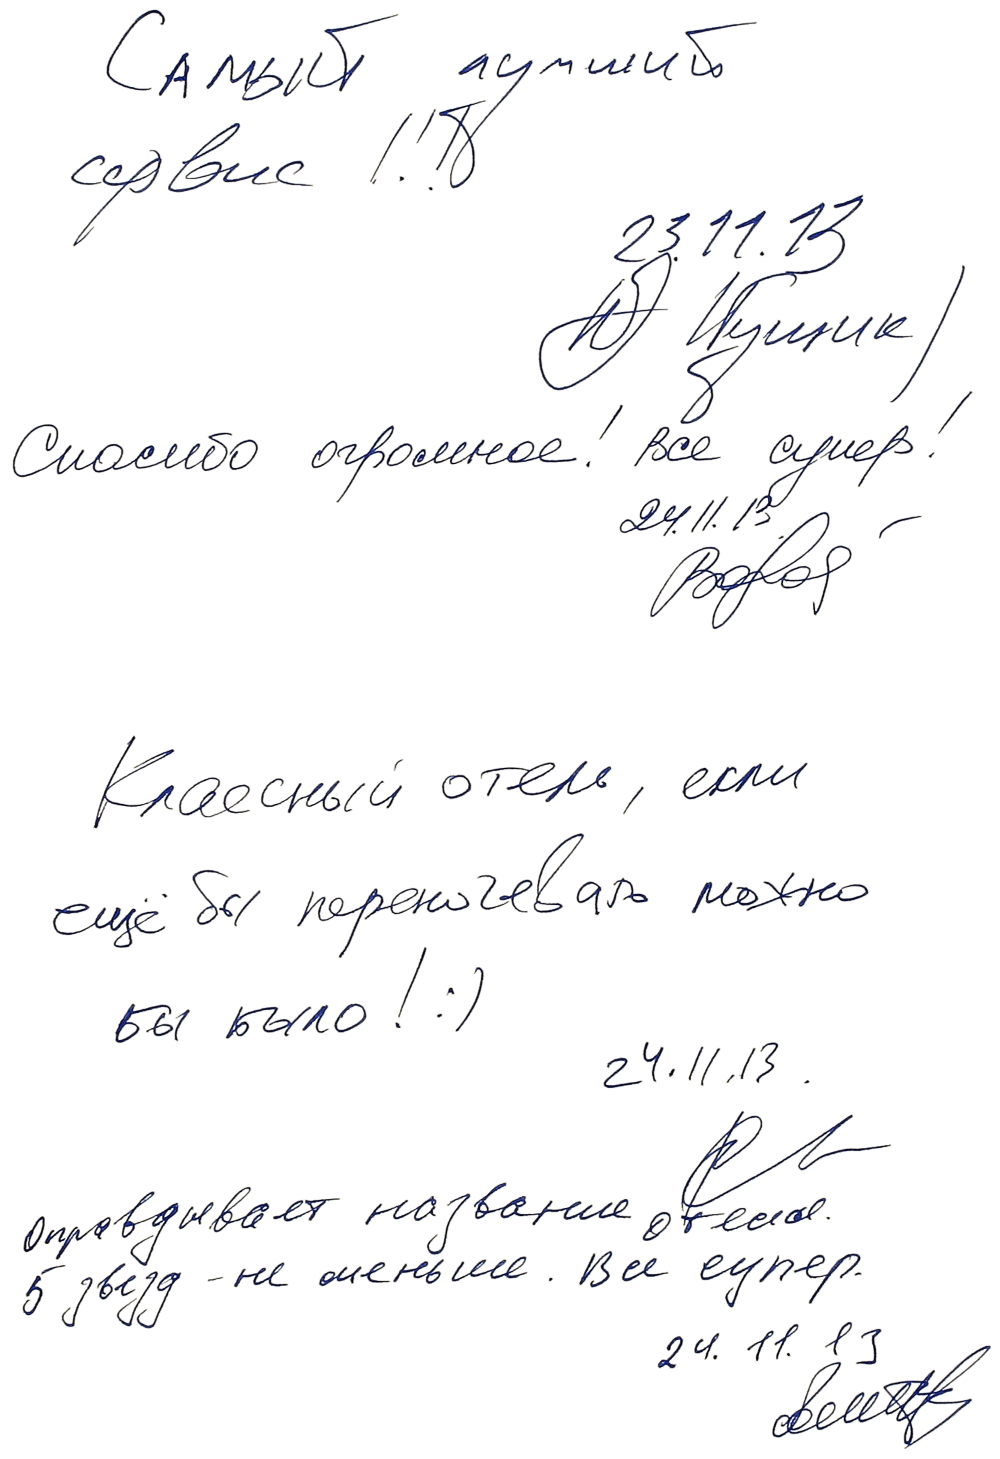 Самый лучший
сервис!!!
23.11.13
Спасибо огромное! Все супер!
24.11.13
Классный отель, если
ещё бы переночевать можно
бы было! :)
24.11.13.
Оправдывает название отеля.
5 звёзд - не меньше. Все супер.
24.11.13